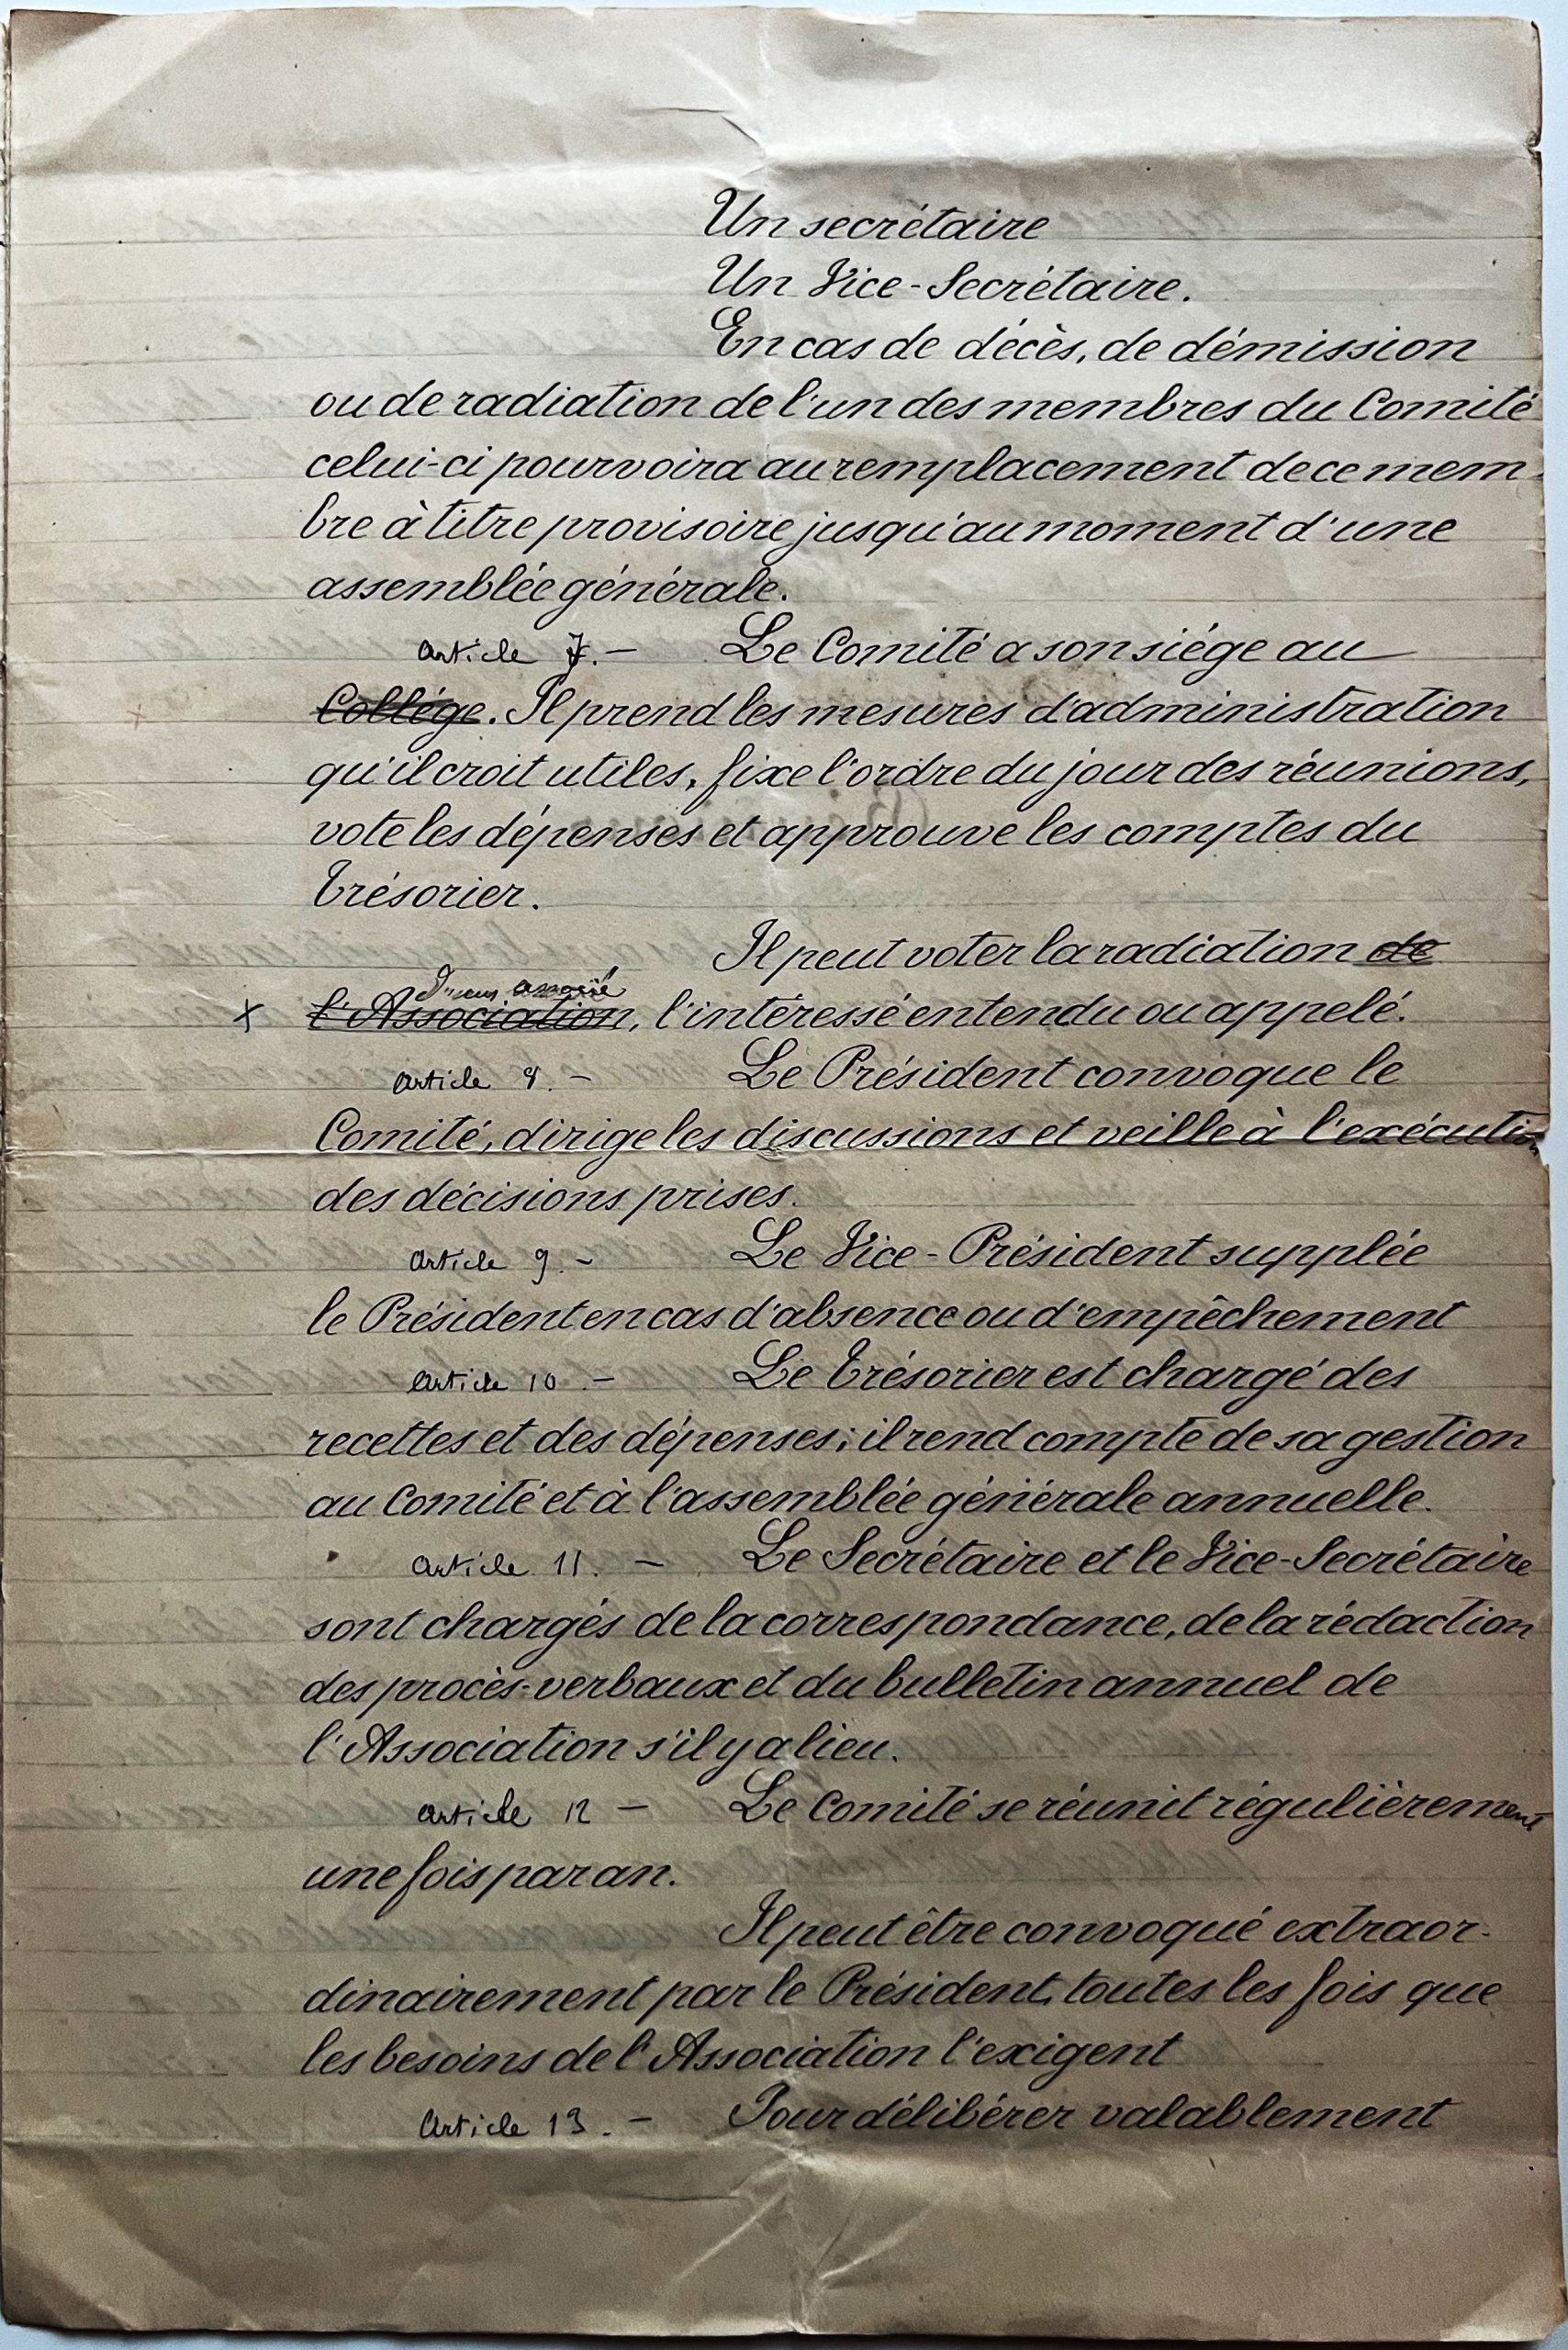 Un secrétaire
Un Vice-Secrétaire.
En cas de décès, de démission
ou de radiation de l'un des membres du Comité
celui-ci pourvoira au remplacement de ce mem-
bre à titre provisoire jusqu'au moment d'une
assemblée générale.
article 7.- Le Comité a son siége au
Collége. Il prend les mesures d'administration
qu'il croit utiles, fixe l'ordre du jour des réunions,
vote les dépenses et approuve les comptes du
Trésorier.
Il peut voter la radiation de
d'un associé
x l'Association, l'intéressé entendu ou appelé.
article 8.- Le Président convoque le
Comité, dirige les discussions et veille à l'exécution
des décisions prises.
article 9.- Le Vice-Président supplée
le Président en cas d'absence ou d'empêchement
article 10.- Le Trésorier est chargé des
recettes et des dépenses; il rend compte de sa gestion
au Comité et à l'assemblée générale annuelle.
article 11.- Le Secrétaire et le Vice-Secrétaire
sont chargés de la correspondance, de la rédaction
des procès-verbaux et du bulletin annuel de
l'Association s'il y a lieu.
article 12 - Le Comité se réunit régulièrement
une fois par an.
Il peut être convoqué extraor-
dinairement par le Président, toutes les fois que
les besoins de l'Association l'exigent
article 13.- Pour délibérer valablement